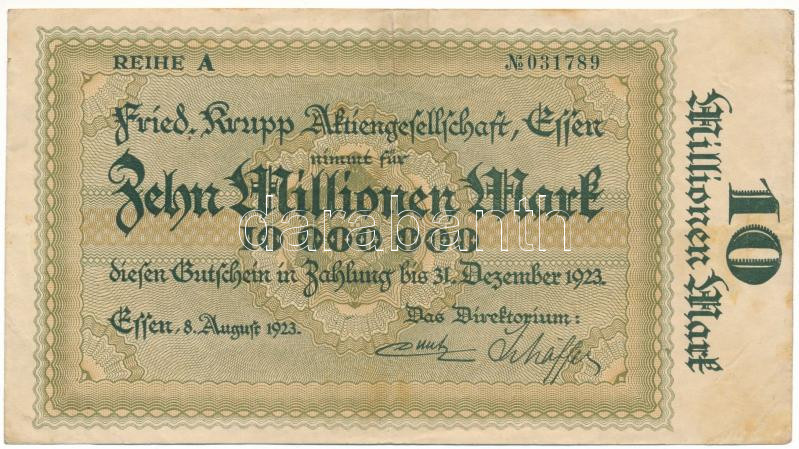 REIHE A
№ 031789
Fried. Krupp Aktiengesellschaft, Essen
nimmt für
Zehn Millionen Mark
10 000 000
diesen Gutschein in Zahlung bis 31. Dezember 1923.
Essen, 8. August 1923.
Das Direktorium:
Schäffer
10
Millionen Mark
databanth